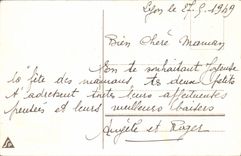 Lyon le 27-5-1949
Bien Chère Maman
En te souhaitant Joyeuse
la fête des mamans ts deux petits
t'adressent toutes leurs affectueuses
pensées et leurs meilleurs baisers
Angèle et Roger